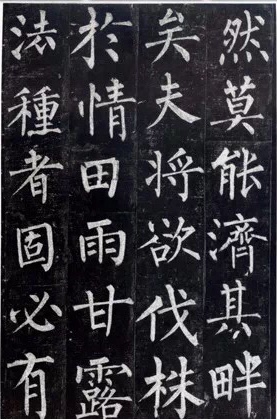 然莫能濟其畔
矣夫將欲伐株
於情田雨甘露
法種者固必有